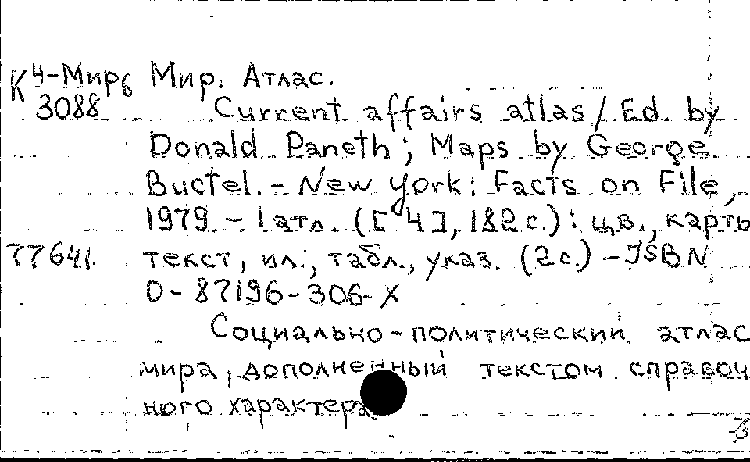 К 4-Мир6 Мир. Атлас.
3088 Current affairs atlas / Ed. by
Donald Paneth ; Maps by George
Buctel. - New York : Facts on File,
1979. - 1 атл. ([4], 182 с.) : цв., карты
77641. текст, ил., табл., указ. (2 с.) - ISBN
0-87196-306-X
Социально-политический атлас
мира, дополненный текстом справоч
ного характера